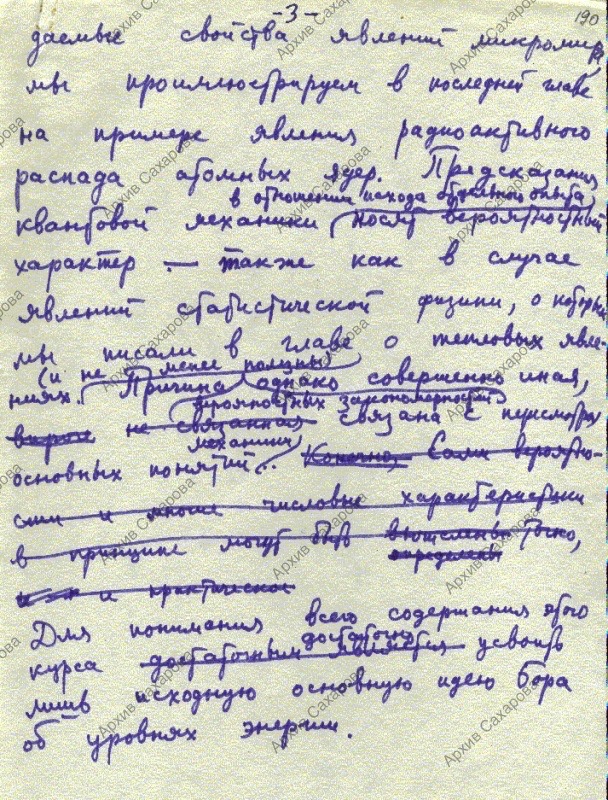 -3-
190
даемые свойства явлений микромира
мы проиллюстрируем в последней главе
на примере явления радиоактивного
распада атомных ядер. Предсказания
в отношении исхода отдельного опыта,
квантовой механики носят вероятностный
характер — также как в случае
явлений статистической физики, о которых
мы писали в главе о тепловых явле-
(и не менее полезны)
ниях. Причина однако совершенно иная,
вероятностных закономерностей
не связанная связана с пересмотром
механики
основных понятий.. Конечно, Сами вероятно-
сти и многие числовые характеристики
в принципе могут быть вычислены точно,
определены
и практическое
Для понимания всего содержания этого
достаточно
курса достаточным является усвоить
лишь исходную основную идею Бора
об уровнях энергии.
Архив Сахарова